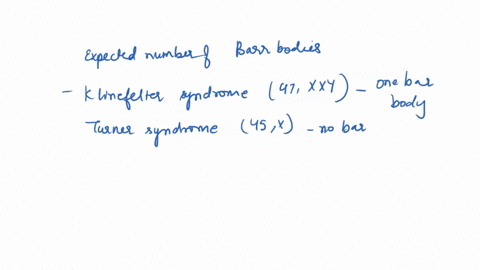 Expected number of Barr bodies
- Klinefelter syndrome (47, XXY) - one bar body
Turner syndrome (45, X) - no bar